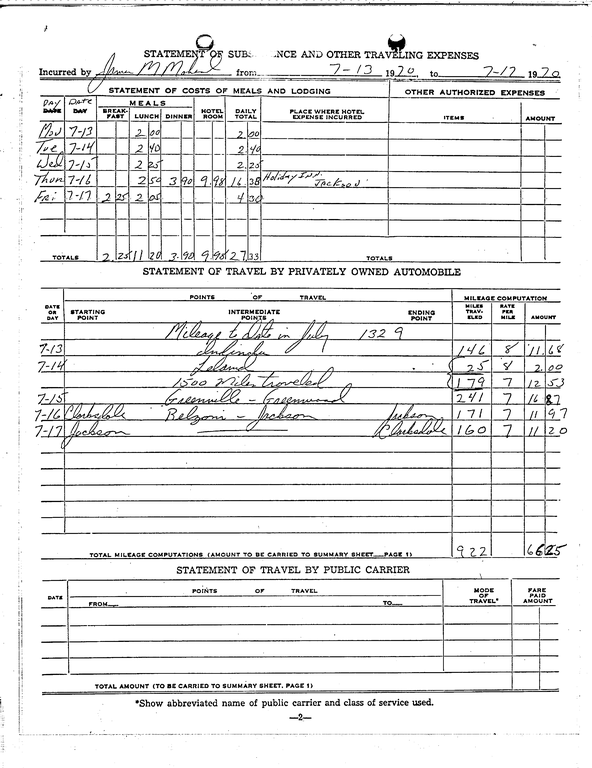 STATEMENT OF SUBS NCE AND OTHER TRAVELING EXPENSES
Incurred by James M from 7-13 1970 to 7-17 1970
STATEMENT OF COSTS OF MEALS AND LODGING OTHER AUTHORIZED EXPENSES
DAY DATE MEALS
DATE DAY BREAK-FAST LUNCH DINNER HOTEL ROOM DAILY TOTAL PLACE WHERE HOTEL EXPENSE INCURRED ITEMS AMOUNT
Mon 7-13 2 00 2 00
Tue 7-14 2 40 2 40
Wed 7-15 2 25 2.25
Thurs 7-16 2 50 3 90 9.98 16.38 Holiday Inn Jackson
Fri 7-17 2 25 2 05 4 30
TOTALS 2.25 11 20 3.90 9 98 27 33 TOTALS
STATEMENT OF TRAVEL BY PRIVATELY OWNED AUTOMOBILE
POINTS OF TRAVEL MILEAGE COMPUTATION
DATE OR DAY STARTING POINT INTERMEDIATE POINTS ENDING POINT MILES TRAV-ELED RATE PER MILE AMOUNT
Mileage to Date in July 1329
7-13 146 8 11.68
7-14 Leland 25 8 2.00
1500 Miles traveled 179 7 12 53
7-15 Greenville - Greenwood 241 7 16 87
7-16 Clarksdale Belzoni - Jackson Jackson 171 7 11 97
7-17 Jackson Clarksdale 160 7 11 20
TOTAL MILEAGE COMPUTATIONS (AMOUNT TO BE CARRIED TO SUMMARY SHEET PAGE 1) 922 66 25
STATEMENT OF TRAVEL BY PUBLIC CARRIER
DATE POINTS OF TRAVEL MODE OF TRAVEL* FARE PAID AMOUNT
FROM TO
TOTAL AMOUNT (TO BE CARRIED TO SUMMARY SHEET, PAGE 1)
*Show abbreviated name of public carrier and class of service used.
—2—